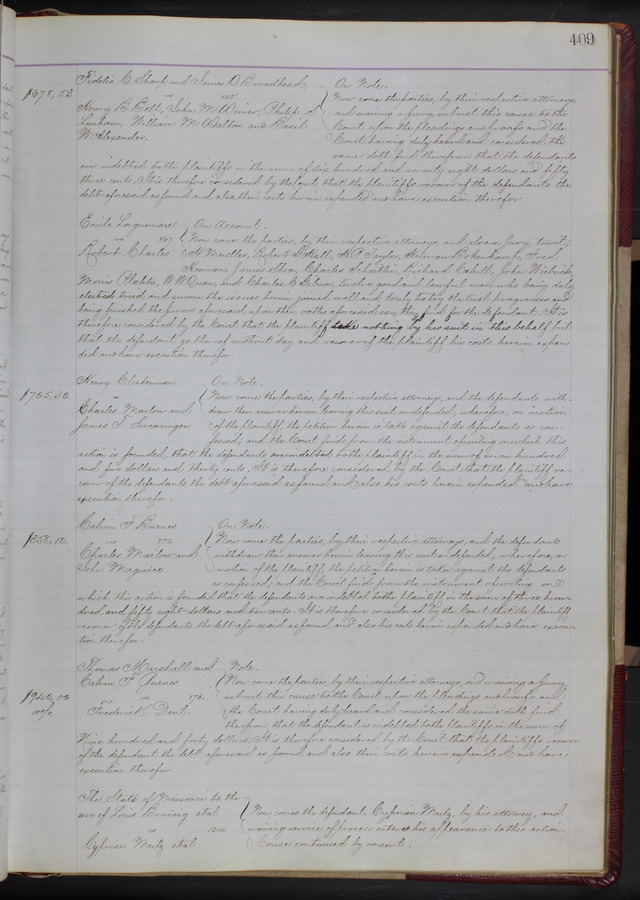 409
Fidelio C. Sharp and James O. Broadhead On Note.
$678,53 vs Now come the parties, by their respective attorneys
Henry B. Belt, John M. Philip
and waiving a jury, submit this cause to the
Lanham, William M. and Basil
Court upon the pleadings and proofs and the
W. Alexander.
Court having duly heard and considered the
same doth find therefrom that the defendants
are indebted to the plaintiffs in the sum of six hundred and seventy eight dollars and fifty
three cents. It is therefore considered by the Court that the plaintiffs recover of the defendants the
debt aforesaid as found and also their costs herein expended and have execution therefor.
Emile On Account.
vs Now come the parties, by their respective attorneys, and also a Jury, towit;
Robert Charles Robert G. Hall, H. P. Taylor, Herman Fred.
James Shea, Charles Richard Cahill, John
Morris W. W. and Charles G. twelve good and lawful men who being duly
elected tried and sworn the issues herein joined well and truly to try the trial progresses and
being finished the jurors aforesaid upon their oaths aforesaid say they find for the defendant. It is
therefore considered by the Court that the plaintiff take nothing by his suit in this behalf but
that the defendant go thereof without day and recover of the plaintiff his costs herein expen
ded and have execution therefor.
Henry On Note.
$705,30 vs Now come the parties, by their respective attorneys, and the defendants with-
Charles Marlow and draw their answer herein leaving this suit undefended, wherefore, on motion
James T. Swearingen of the plaintiff, the petition herein is taken against the defendants as con-
fessed; and the Court finds from the instrument of writing on which this
action is founded, that the defendants are indebted to the plaintiff in the sum of seven hundred
and five dollars and thirty cents. It is therefore considered by the Court that the plaintiff re-
cover of the defendants the debt aforesaid as found and also his costs herein expended and have
execution therefor.
Calvin F. Burnes On Note.
$358,10 vs Now come the parties, by their respective attorneys, and the defendants
Charles Marlow and withdraw their answer herein leaving this suit undefended, wherefore, on
John Maguire motion of the plaintiff, the petition herein is taken against the defendants
as confessed; and the Court finds from the instrument of writing on
which this action is founded that the defendants are indebted to the plaintiff in the sum of three hun-
dred and fifty eight dollars and ten cents. It is therefore considered by the Court that the plaintiff
recover of the defendants the debt aforesaid as found and also his costs herein expended and have execu-
tion therefor.
Thomas Marshall and Note.
Calvin F. Burnes Now come the parties, by their respective attorneys, and waiving a jury,
vs submit this cause to the Court upon the pleadings and proofs and
Frederick Dent. the Court having duly heard and considered the same doth find
therefrom that the defendant is indebted to the plaintiffs in the sum of
Nine hundred and forty dollars. It is therefore considered by the Court that the plaintiffs recover
of the defendant the debt aforesaid as found and also their costs herein expended and have
execution therefor.
The State of Missouri to the
use of Louis Bruning et al Now comes the defendant, Cyprian Meitz, by his attorney, and
vs 1214 waiving service of process enters his appearance to this action.
Cyprian Meitz et al Cause continued by consent.